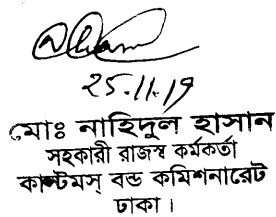 25.11.19
মোঃ নাহিদুল হাসান
সহকারী রাজস্ব কর্মকর্তা
কাস্টমস্ বন্ড কমিশনারেট
ঢাকা ।